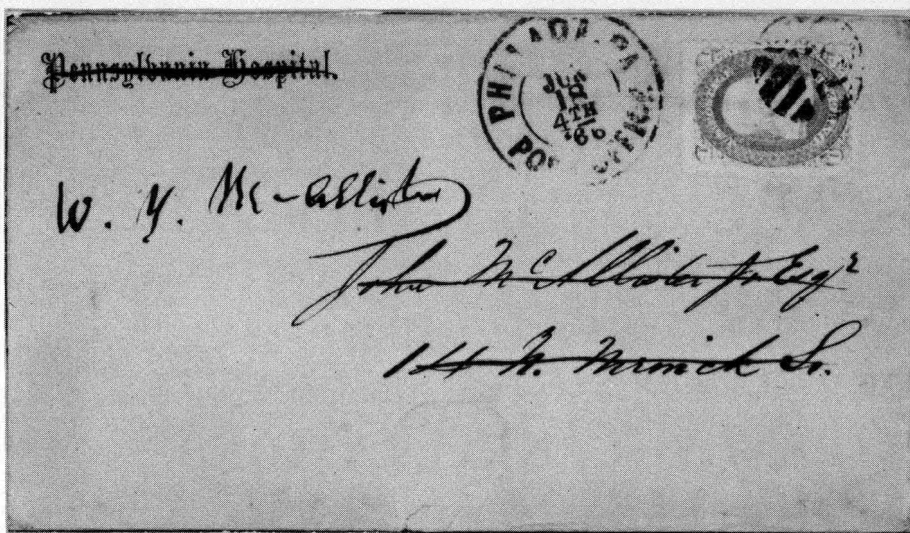 Pennsylvania Hospital.
PHILADA. PA.
11
4TH
POST OFFICE
W. Y. McAllister
John McAllister Jr Esqr
14 N. Merrick St.